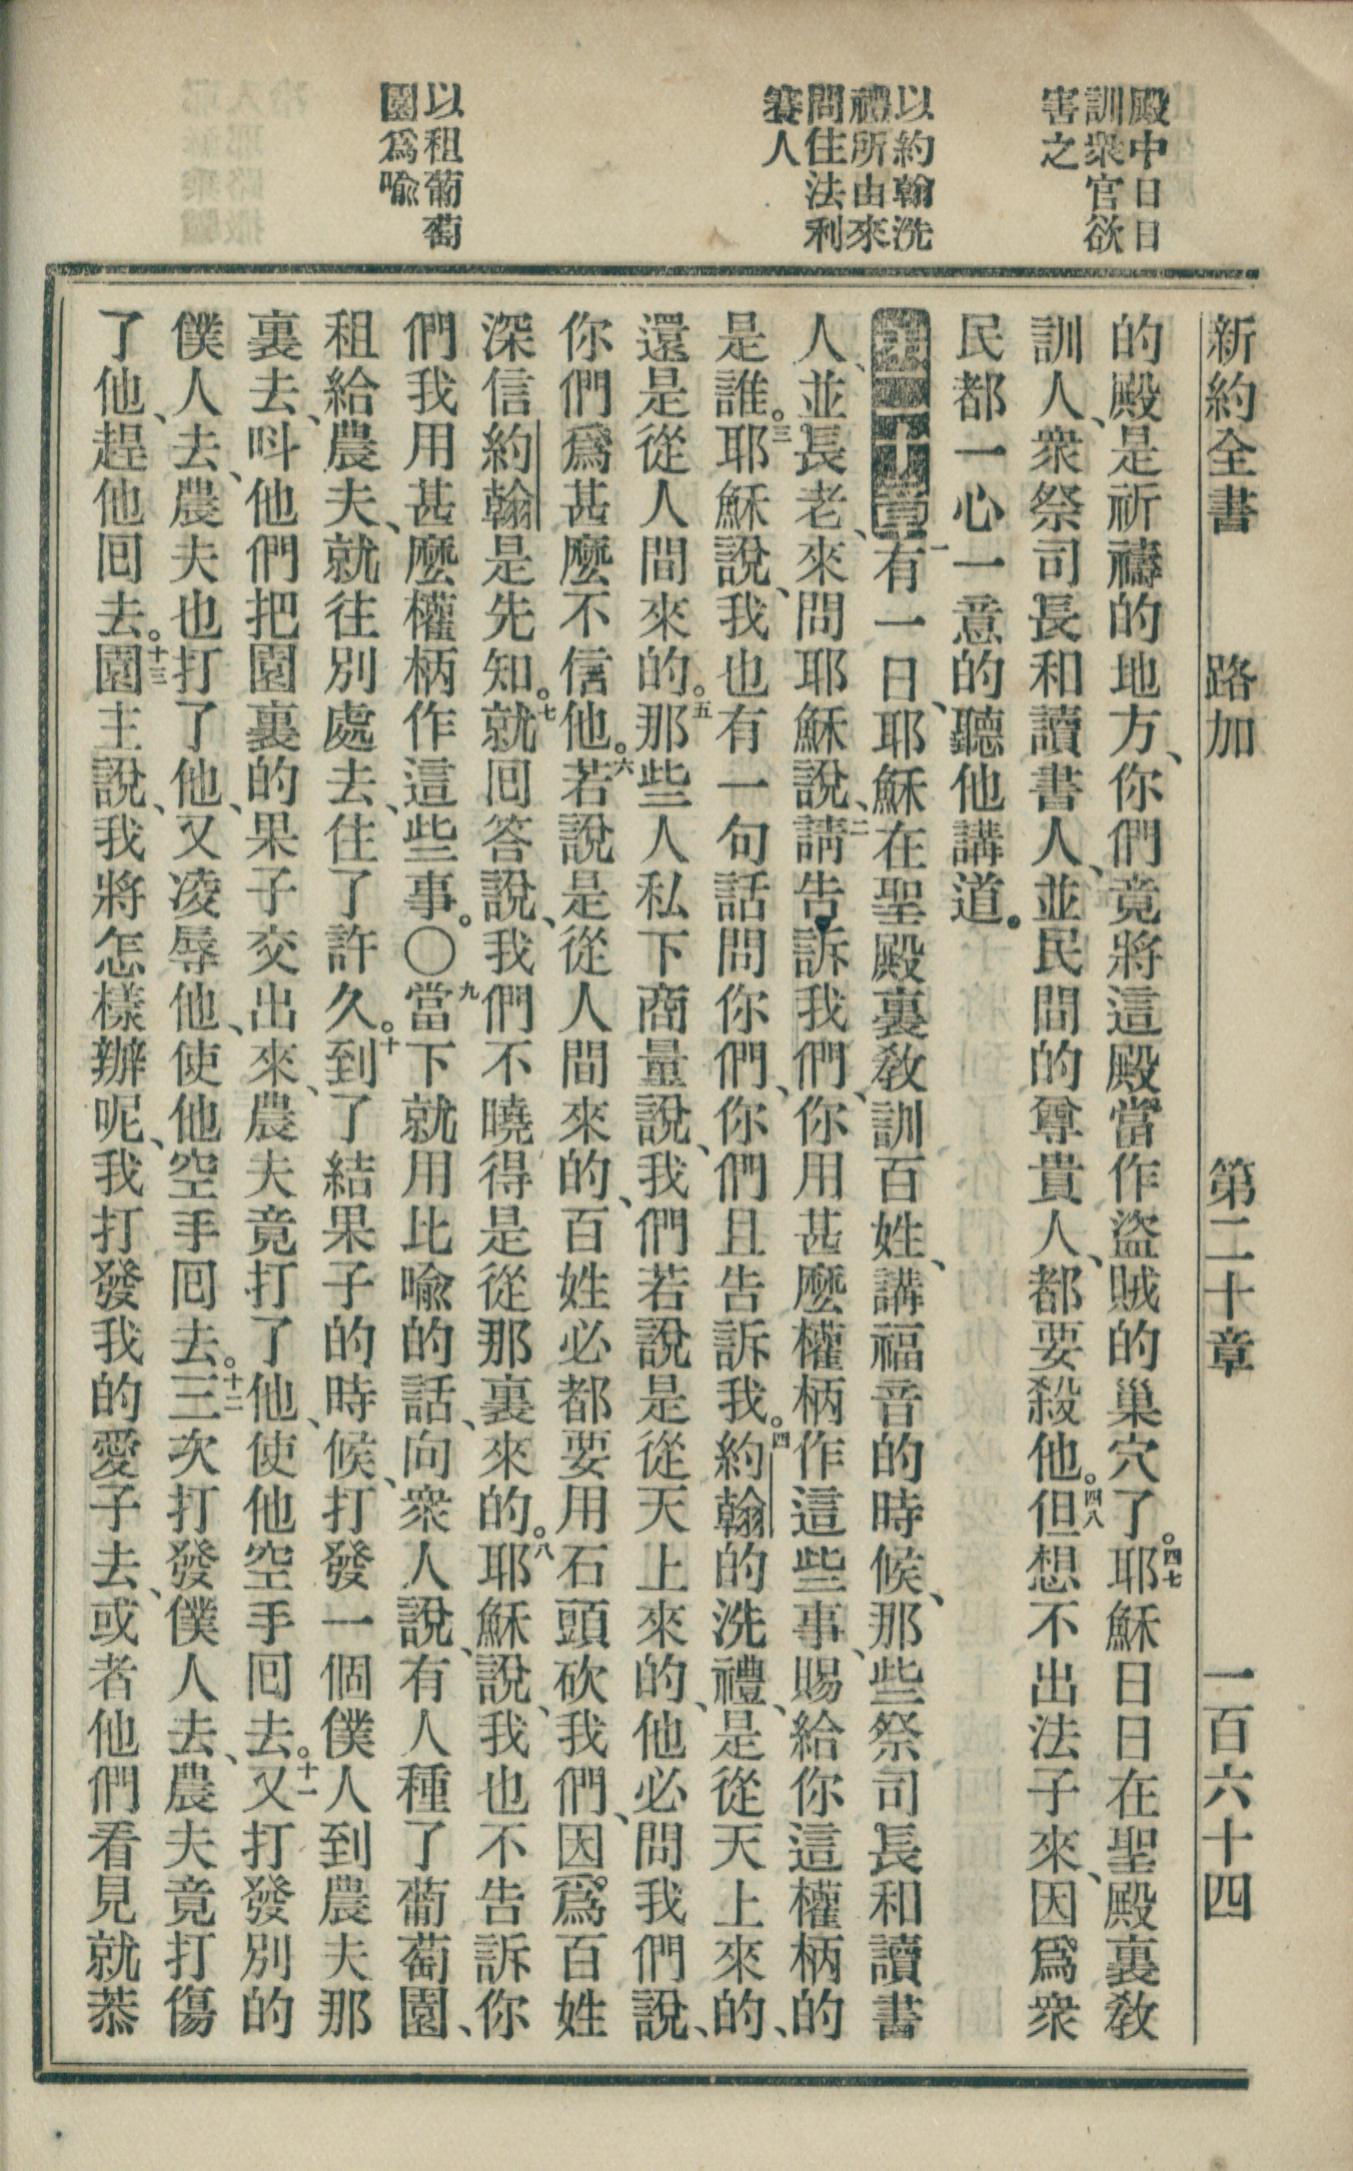 殿中日日
訓衆官欲
害之
以約翰洗
禮所由來
問住法利
賽人
以租葡萄
園爲喩
新約全書 路加 第二十章 一百六十四
的殿是祈禱的地方、你們竟將這殿當作盜賊的巢穴了。四七耶穌日日在聖殿裏敎
訓人、衆祭司長和讀書人、並民間的尊貴人、都要殺他。四八但想不出法子來、因爲衆
民都一心一意的聽他講道。
第二十章一有一日、耶穌在聖殿裏敎訓百姓、講福音的時候、那些祭司長和讀書
人、並長老、來問耶穌說、二請告訴我們、你用甚麼權柄作這些事、賜給你這權柄的
是誰。三耶穌說、我也有一句話問你們、你們且告訴我。四約翰的洗禮、是從天上來的、
還是從人間來的。五那些人私下商量說、我們若說是從天上來的、他必問我們說、
你們爲甚麼不信他。六若說是從人間來的、百姓必都要用石頭砍我們、因爲百姓
深信約翰是先知。七就囘答說、我們不曉得是從那裏來的。八耶穌說、我也不告訴你
們我用甚麼權柄作這些事。〇九當下就用比喩的話、向衆人說、有人種了葡萄園、
租給農夫、就往別處去、住了許久。十到了結果子的時候、打發一個僕人到農夫那
裏去、呌他們把園裏的果子交出來、農夫竟打了他、使他空手囘去。十一又打發別的
僕人去、農夫也打了他、又凌辱他、使他空手囘去。十二三次打發僕人去、農夫竟打傷
了他、趕他囘去。十三園主說、我將怎樣辦呢、我打發我的愛子去、或者他們看見就恭